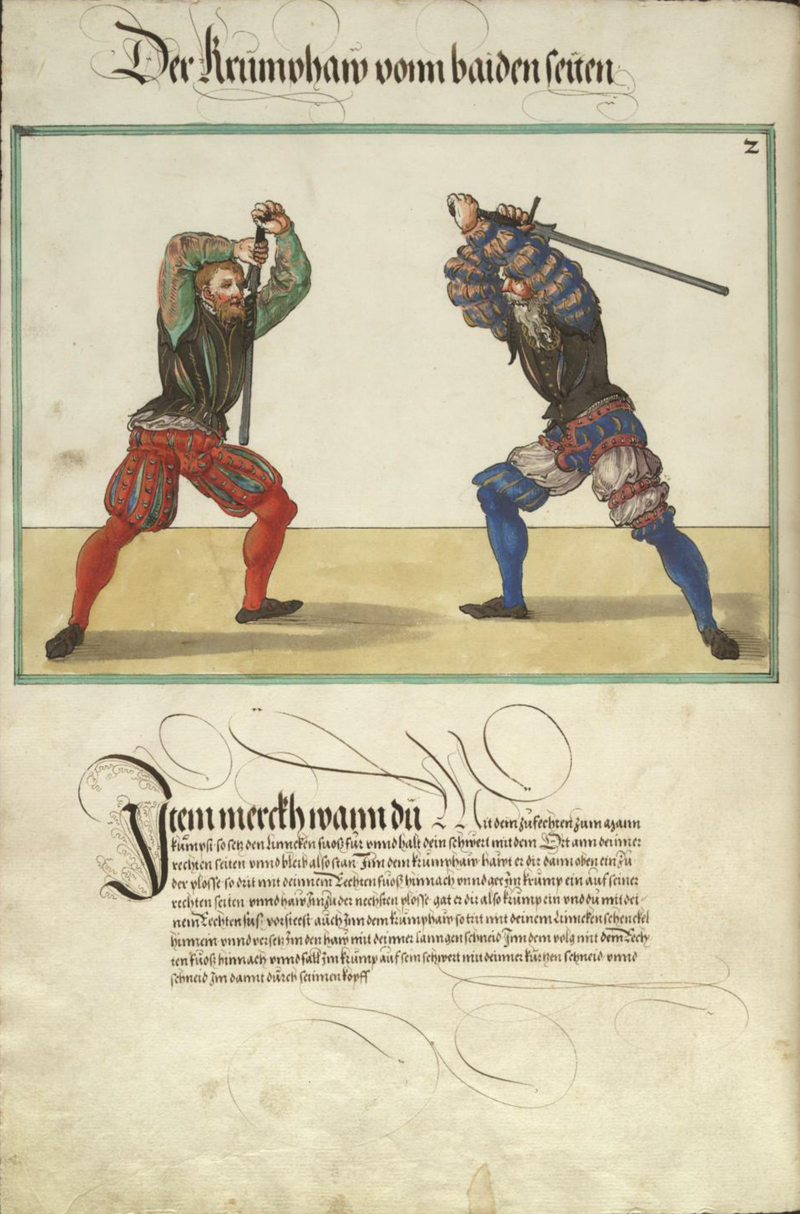 Der Krumphaw vonn baiden seiten
2
Item merckh wann du Mit dem zufechten zum mann
kumpst so setz den Linncken fuoß für vnnd halt dein schwert mit dem Ort ann deinner
rechten seiten vnnd bleib also stan Inn dem krumphaw hawt er dir dann oben ein zu
der plosse so drit mit deinnem Rechten fuoß hinnach vnnd gee Im krump ein auf seiner
rechten seiten vnnd haw Inn zu der nechsten plosse gat er dir also krump ein vnd du mit dei
nem Rechten fuß vorsteest auch Inn dem krumphaw so trit mit deinem Linncken schenckel
hinnein vnnd versetz Im den haw mit deinner lanngen schneid Inn dem volg mit dem Rech
ten fuoß hinnach vnnd fall Im krump auf sein schwert mit deinner kurtzen schneid vnnd
schneid Im damit durch seinnen kopff